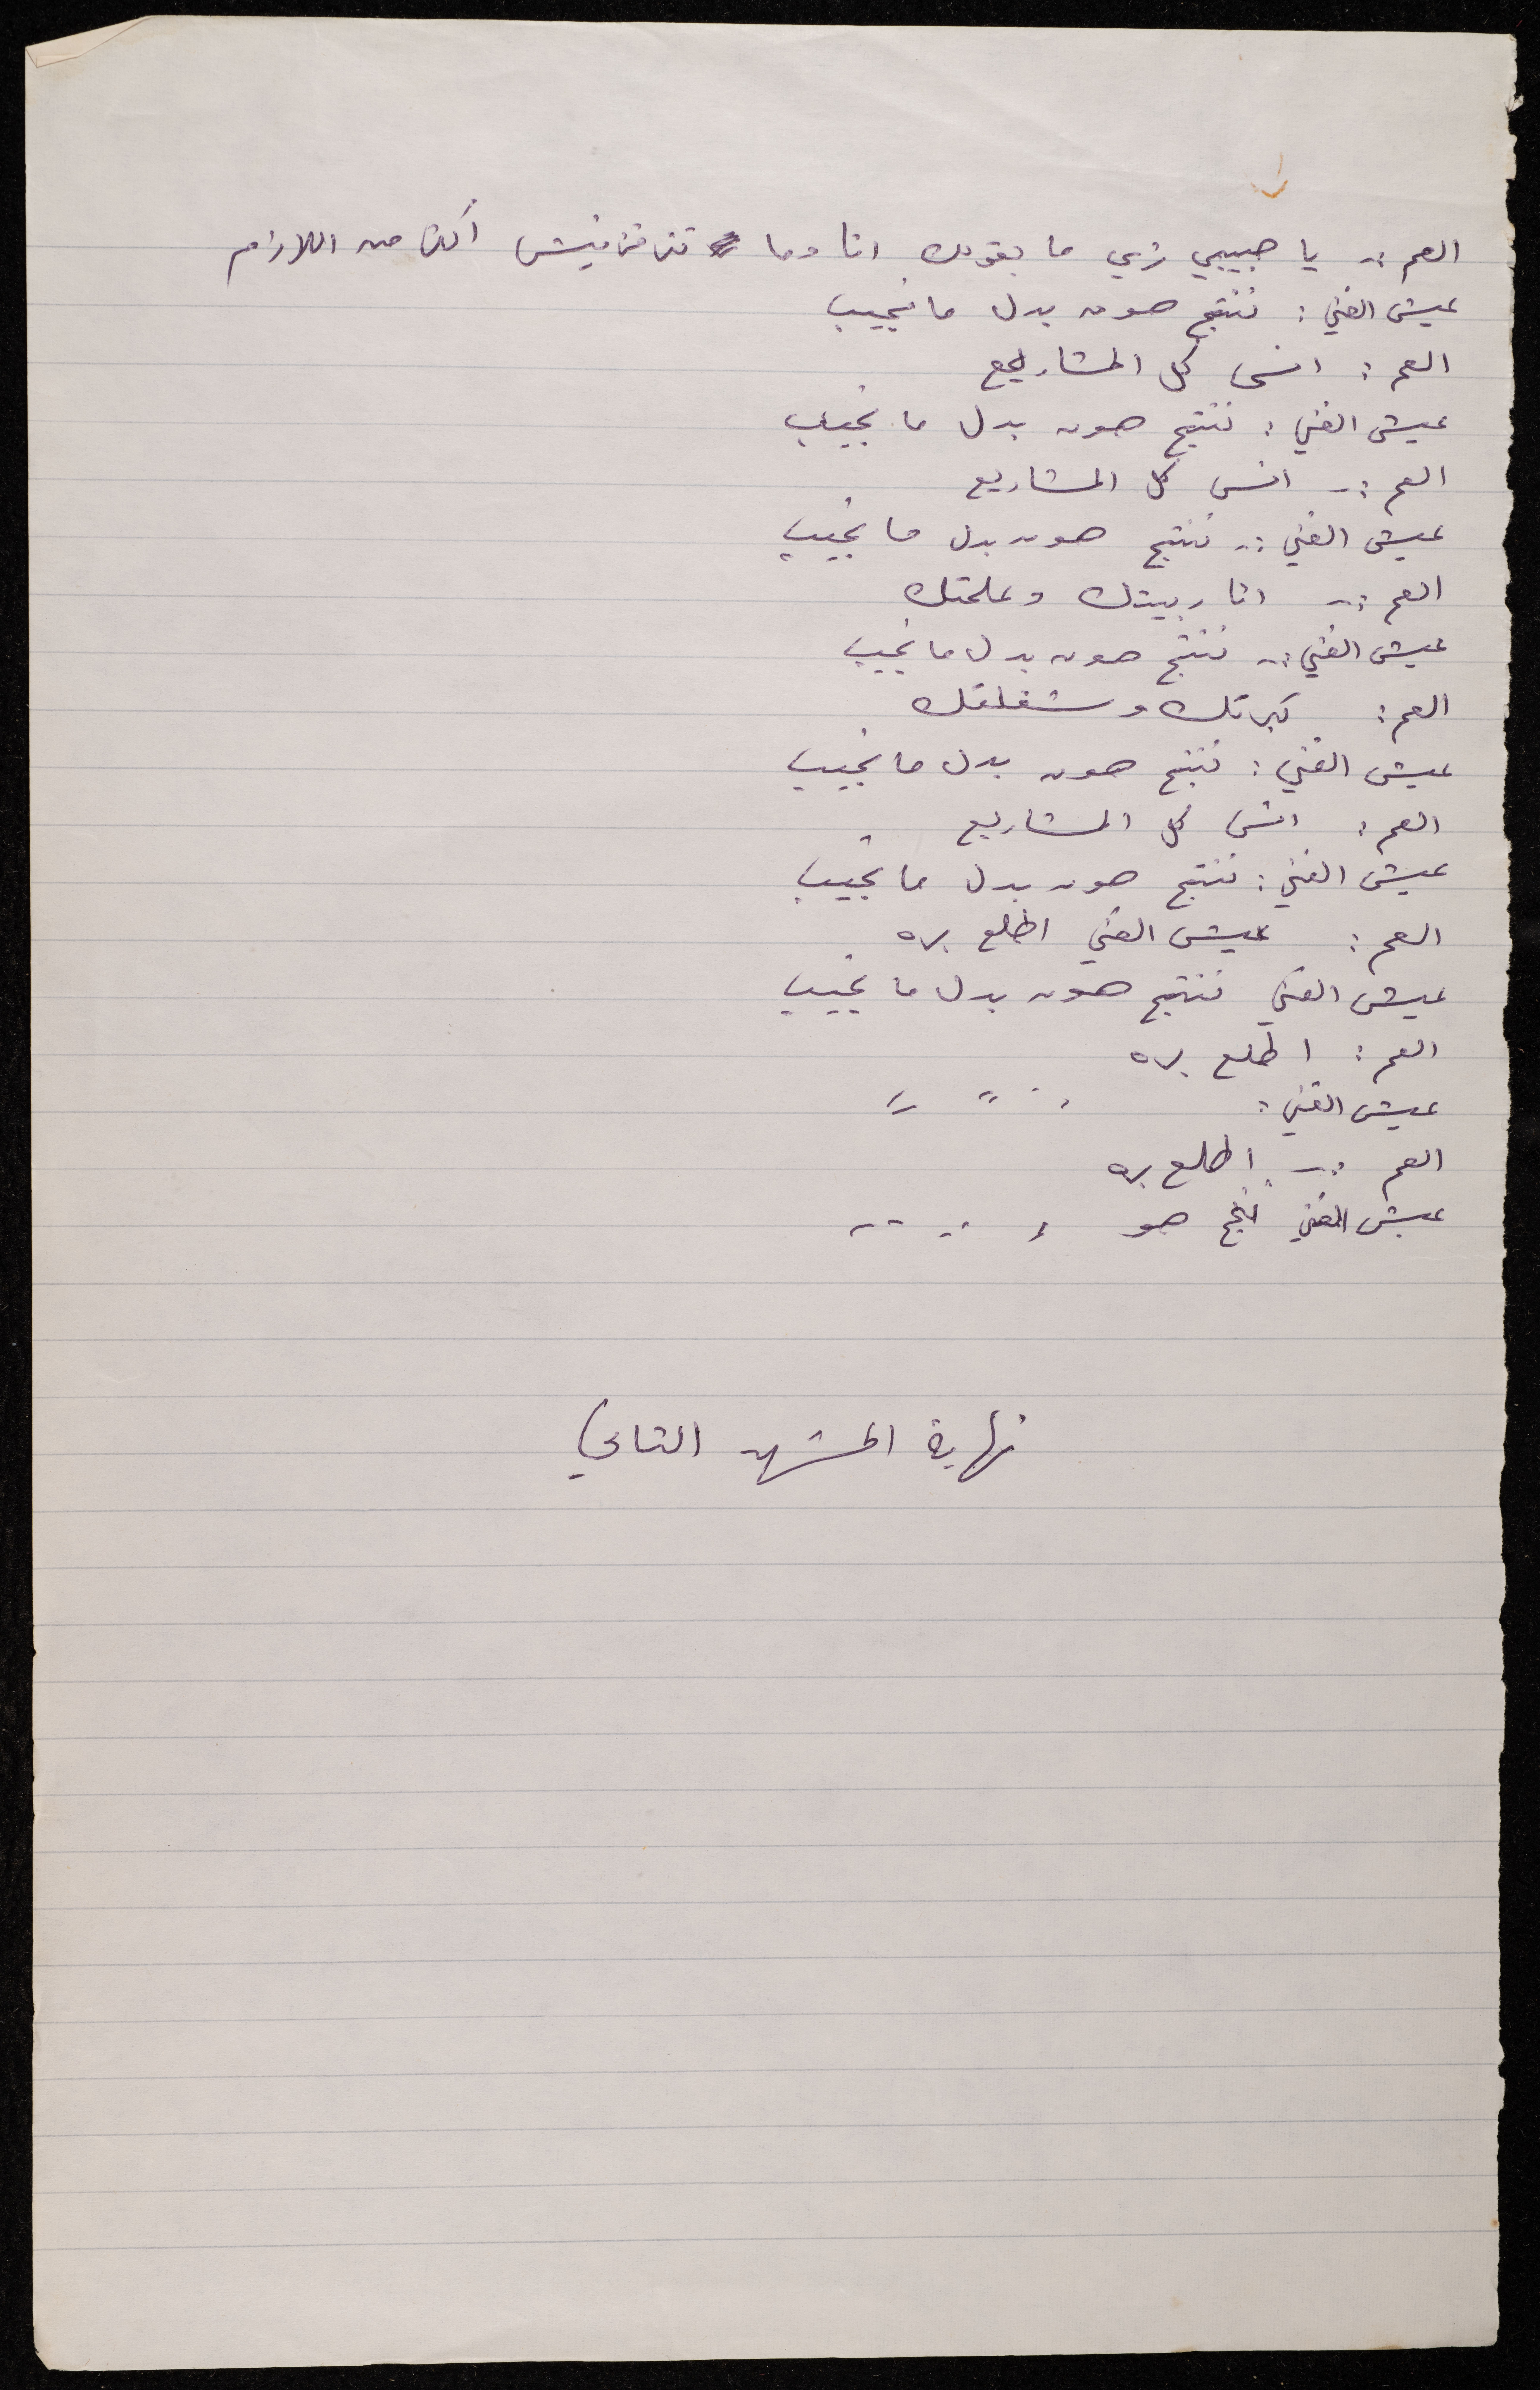 العم :- يا حبيبي زي ما بقولك انا وما تنرفزنيش أكثر من اللازم
عيش الغني : ننتج هون بدل ما نجيب
العم : انسى كل المشاريع
عيش الغني : ننتج هون بدل ما نجيب
العم :- انسى كل المشاريع
عيش الغني :- ننتج هون بدل ما نجيب
العم :- انا ربيتك وعلمتك
عيش الغني :- ننتج هون بدل ما نجيب
العم : كبرتك وشغلتك
عيش الغني : ننتج هون بدل ما نجيب
العم : انسى كل المشاريع
عيش الغني : ننتج هون بدل ما نجيب
العم : عيش الغني اطلع بره
عيش الغني ننتج هون بدل ما نجيب
العم : اطلع بره
عيش الغني : " " "
العم :- اطلع بره
عيش الغني ننتج هو
نهاية المشهد الثاني